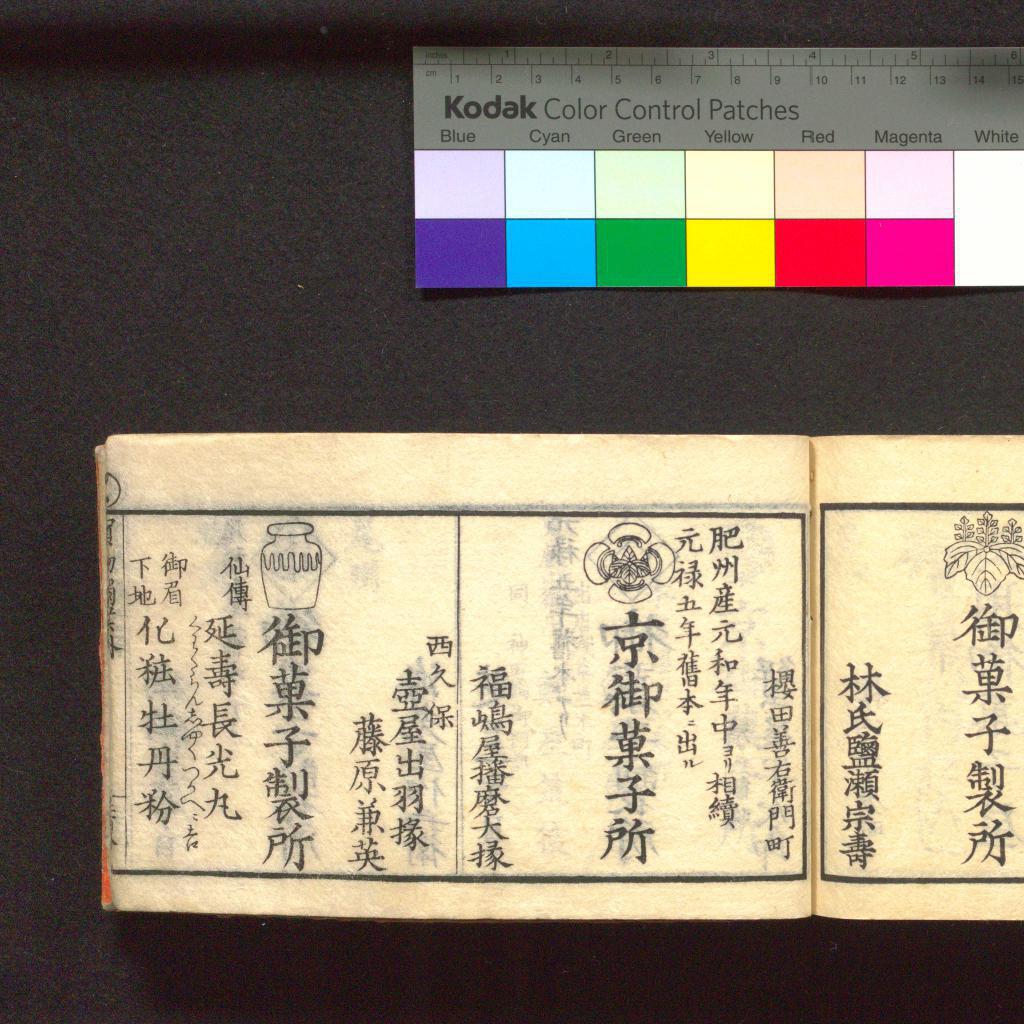 inches 1 2 3 4 5 6
cm 1 2 3 4 5 6 7 8 9 10 11 12 13 14 15
Kodak Color Control Patches
Blue Cyan Green Yellow Red Magenta White
御菓子製所
林氏鹽瀬宗壽
櫻田善右衛門町
肥州産元和年中ヨリ相續
元禄五年舊本ニ出ル
京御菓子所
福嶋屋播磨大掾
西久保
壺屋出羽掾
藤原兼英
御菓子製所
仙傳
延壽長光丸
御眉
下地
化粧牡丹粉